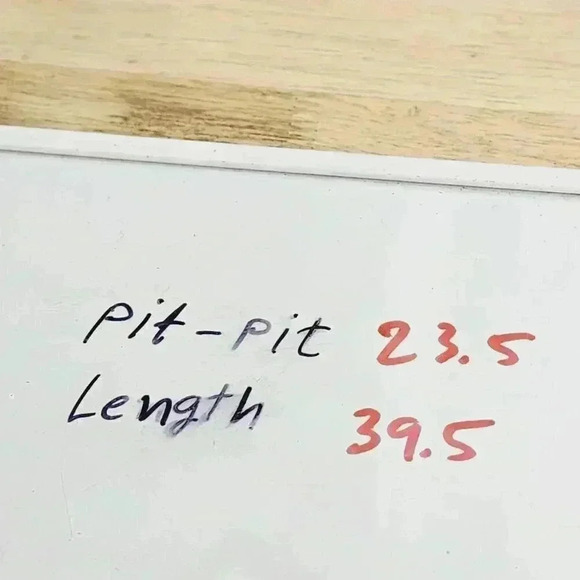 Pit-pit 23.5
Length 39.5